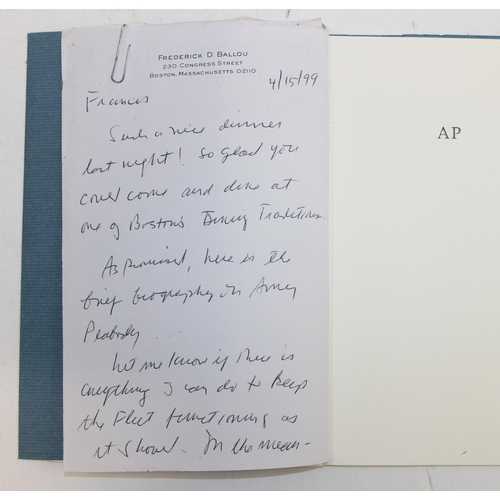 FREDERICK D. BALLOU
230 CONGRESS STREET
BOSTON, MASSACHUSETTS 02110
4/15/99
Frances
Such a nice dinner
last night! So glad you
could come and dine at
one of Boston's Dining Traditions.
As promised, here is the
brief biography on Amy
Peabody...
Let me know if there is
anything I can do to keep
the Fleet functioning as
it should. In the mean-
AP